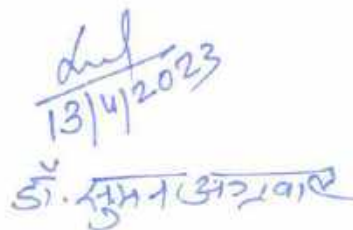 13/4/2023
डॉ. सुमन अग्रवाल